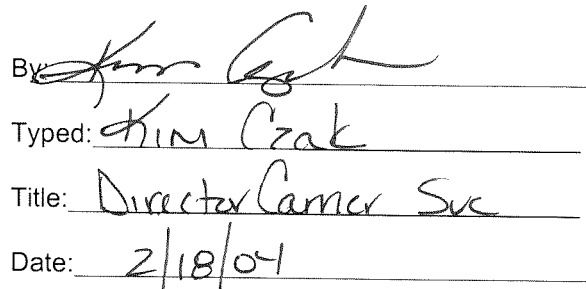 By: Kim Czak
Typed: Kim Czak
Title: Director Carrier Svc
Date: 2/18/04